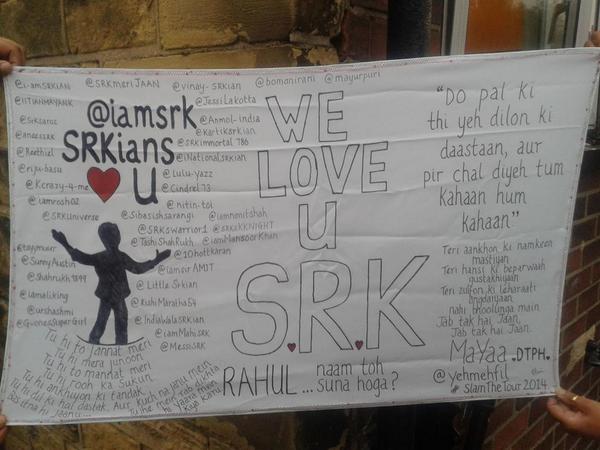 @i-amSRKIAN @SRKmeriJAAN @vinay-SRkian @bomanirani @mayurpuri
@IITIANMAYANK @JessiLakotta
@iamsrk
@Srksaroz @Anmol-india
@kartiksrkian
SRKians
@aneessrk @SRKimmortal 786
@Reethiel @iNationalSRKian
@riju-basu @Lulu-yazz
@Kcrazy-4-me U @Cindrel 73
@iamrosh02 @nitin-toi
@SRKUniverse @Sibasishsarangi @iamnmitshah
@SRKswarrior1 @SRKsKKNIGHT
@TashiShahRukh @iamMansoorKhan
@taymuurr @10hottkaran
@SunnyAustin @iamsrAMIT
@Shahrukh9899 @Little Srkian
@iamaliking @RuhiMaratha54
@urshashmi @IndiaWalaSRKian
@GvonesSuperGirl @iamMahiSRK
@MessiSRK
Tu hi to Jannat meri
Tu hi mera junoon
Tu hi to mannat meri
Tu hi rooh ka Sukun
Tu hi ankhiyon ki tandak
Tu hi dil ki hai dastak, Aur kuch na janu, mein
Bas itna hi Jaanu...
Tujhe mein rab dikhta
hi Yaara mein
kya Karu
WE
LOVE
U
S.R.K
RAHUL ... naam toh
suna hoga?
"Do pal ki
thi yeh dilon ki
daastaan, aur
pir chal diyeh tum
kahaan hum
kahaan"
Teri aankhon ki namkeen
mastiyan
Teri hansi ki beparwah
gustakhiyaan
Teri zulfon ki leharaati
angdaiyaan
nahi bhoolunga main
Jab tak hai Jaan
Jab tak hai Jaan.
Mayaa.DTPH.
@yehmehfil
# SlamTheTour 2014